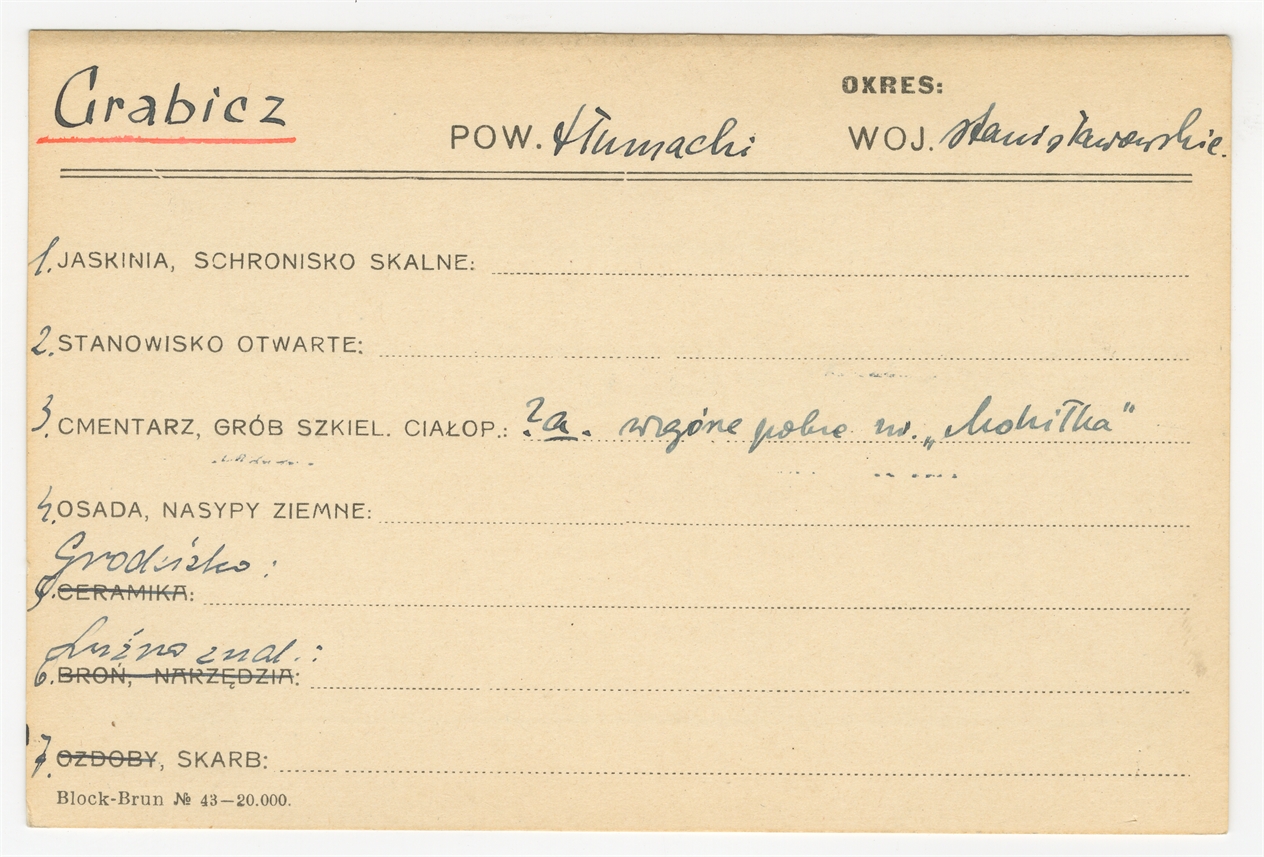 Grabicz
OKRES:
POW. tłumacki WOJ. stanisławowskie.
1. JASKINIA, SCHRONISKO SKALNE:
2. STANOWISKO OTWARTE:
3. CMENTARZ, GRÓB SZKIEL. CIAŁOP.: ?a. wzgórze polne "Mohiłka"
4. OSADA, NASYPY ZIEMNE:
Grodzisko:
5. CERAMIKA:
Luźne znal.:
6. BROŃ, NARZĘDZIA:
7. OZDOBY, SKARB:
Block-Brun № 43—20.000.